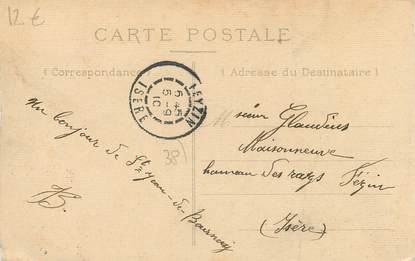 12 €
CARTE POSTALE
Correspondance
Adresse du Destinataire
FEYZIN
6 45
5 - 9
10
ISERE
38
un bonjour de St
Jean-de-Bournay
B.
Mr
sieur Glaudius
Maisonneuve
hameau des razes Fézin
(Isère)